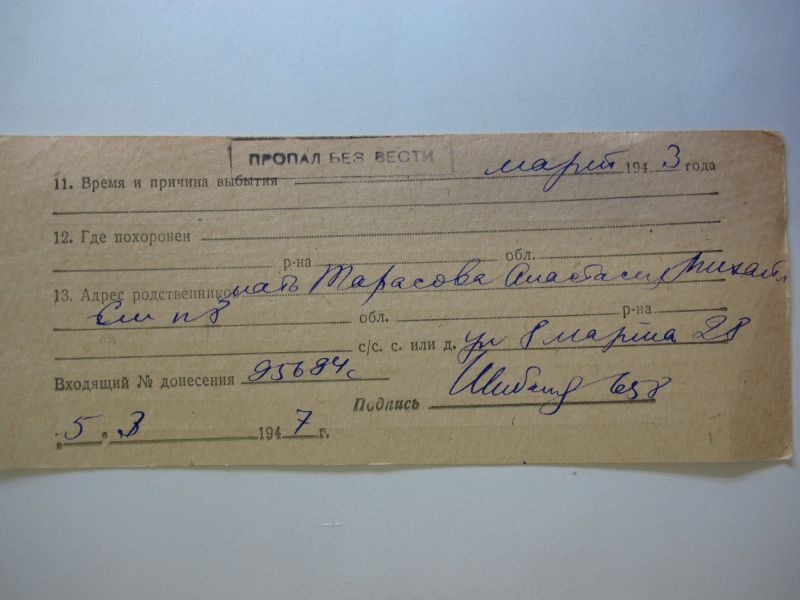 ПРОПАЛ БЕЗ ВЕСТИ
11. Время и причина выбытия март 1943 года
12. Где похоронен
р-на обл.
13. Адрес родственников мать Тарасова Анастасия Михайл
обл. р-на
с/с. с. или д. ул 8 марта 28
Входящий № донесения 95694с
Подпись
5. 3 1947 г.